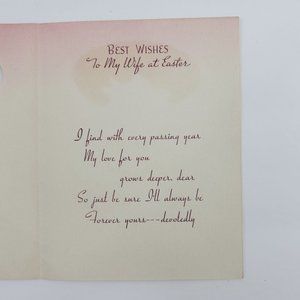 BEST WISHES
To My Wife at Easter
I find with every passing year
My love for you
grows deeper, dear
So just be sure I'll always be
Forever yours---devotedly